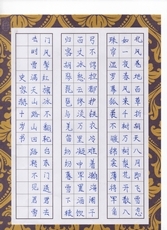 北风卷地白草折胡天八月即飞雪忽
如一夜春风来千树万树梨花开散入
珠帘湿罗幕狐裘不暖锦衾薄将军角
弓不得控都护铁衣冷难着瀚海阑干
百丈冰愁云惨淡万里凝中军置酒饮
归客胡琴琵琶与羌笛纷纷暮雪下辕
门风掣红旗冻不翻轮台东门送君去
去时雪满天山路山回路转不见君雪
史容 十岁书